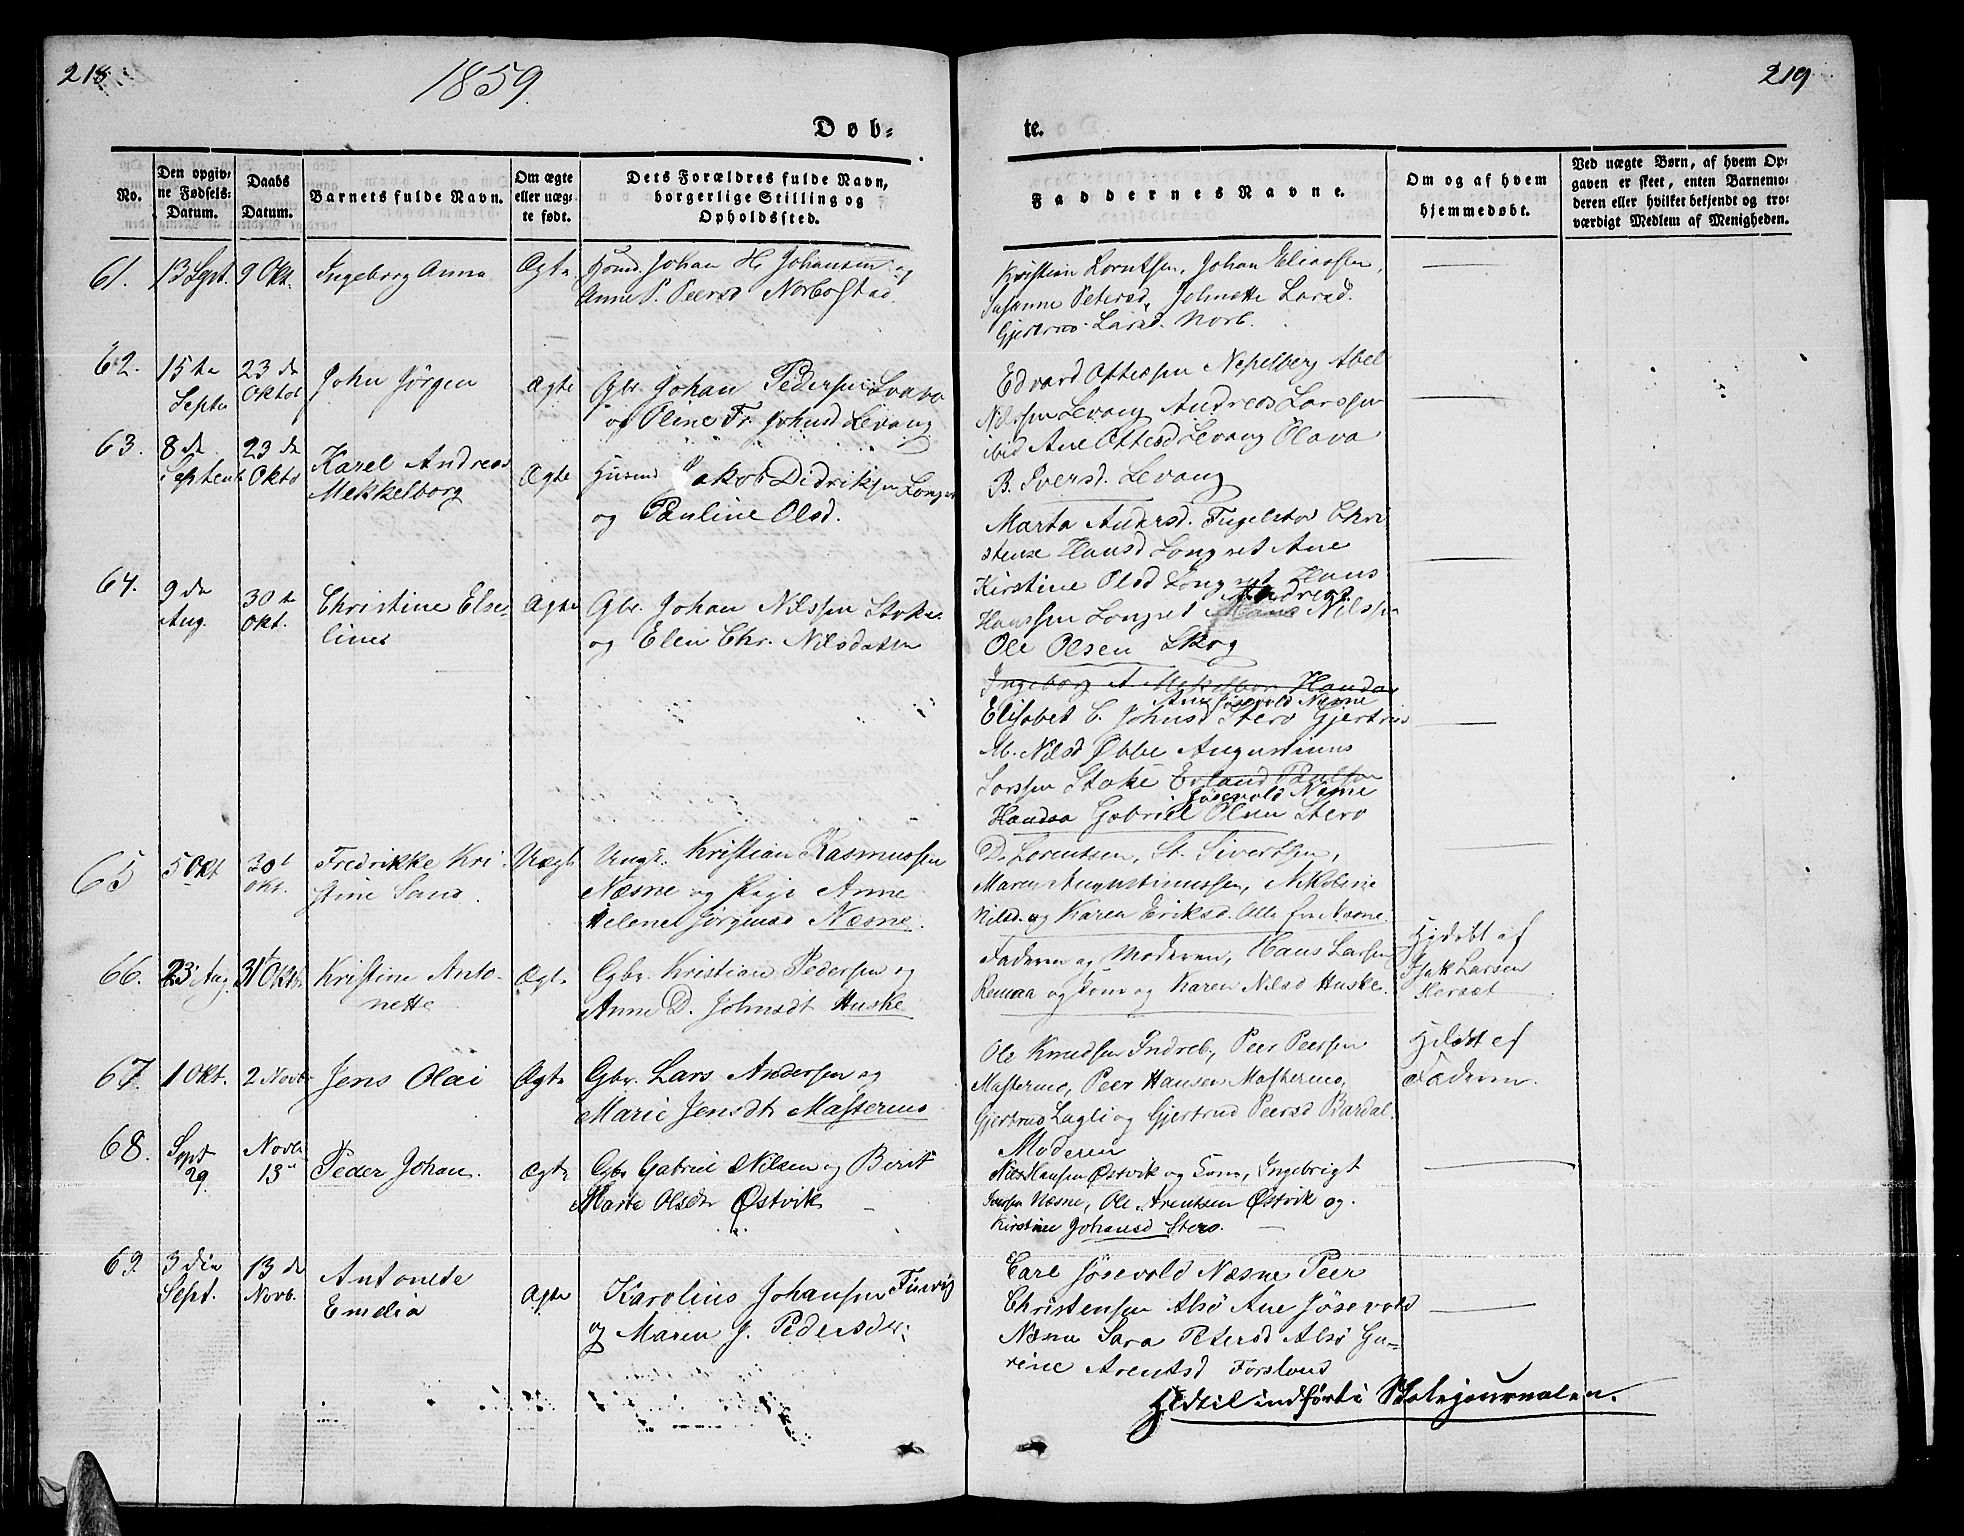 218
1859.
219
Døb-
te.
No.
Den opgiv-
ne Fødsels-
Datum.
Daabs
Datum.
Barnets fulde Navn.
Om ægte
eller uæg-
te født.
Dets Forældres fulde Navn,
borgerlige Stilling og
Opholdssted.
Faddernes Navne.
Om og af hvem
hjemmedøbt.
Ved uægte Børn, af hvem Op-
gaven er skeet, enten Barnemo-
deren eller hvilket bekjendt og tro-
værdigt Medlem af Menigheden.
61. 13 Sept. 9 Okt. Ingeborg Anna Ægte Johan H. Johansen og
Anne P. Peersd
Kristian Lorntsen, Johan Eliassen,
Susanne Petersd, Johnette Larsd.
Gjertrud Larsd. Norb.
62. 15 de
Septe
23 de
Oktob
John Jörgen Ægte Gbr. Johan Pedersen
og Oline Fr. Johnsd Levang
Edvard Ottessen Nepelberg Abel
Nilssen Levang Andreas Larssen
ibid Ane Ottesd Levang Olava
B. Iversd. Levang
63. 8 de
Septemb
23 de
Oktb
Karel Andreas
Mekkelborg
Ægte Husmd Jakob Didriksen Longset
og Pauline Olsd.
Marta Andersd. Fugelstad Chri
stense Hansd Longset Ane
Kirstine Olsd Longset Hans
Hanssen Longset Andreas Nilssen
Ole Olsen Skog
64. 9 de
Aug.
30 te
Okt.
Christine Else-
lines
Ægte Gbr. Johan Nilssen Stoke
og Elen Chr. Nilsdatter
Ingeborg A. Mekelbor Handa
Ane Jösevold Nesne
Elisabet C. Johnsd Stero Gjertrud
M. Nilsd Øbbe Augustinus
Larssen Stoke Erland Paulsen
Jösevold Nesne
Handaa Gabriel Olsen Stero
65 5 Okt 30t
Okt.
Fredrikke Kri-
stine
Uægt. Ungk. Kristian Rasmussen
Næsne og Pige Anne
Helene Jörgensd Næsne.
D. Lorentsen, St. Sivertsen,
Maren Augustinussen, Nikoline
Nilsd. og Karen Eriksd. Alle fra Næsne.
66. 23 Aug. 31t Oktbr. Kristine Anto-
nette
Ægte Gbr. Kristian Pedersen og
Anne D. Johnsdt Huske
Faderen og Moderen, Hans Larsen
Remaa og Kone og Karen Nilsd Huske.
Hjdøbt af
Isak Larsen
67. 1 Okt. 2 Novb Jens Olai Ægte Gbr. Lars Andersen og
Marie Jensdt Mastermo
Ole Knudsen Indreb, Peer Peersen
Mastermo, Peer Hansen Mastermo,
Gjertrud Lagli og Gjertrud Peersd Bardal.
Hjdøbt af
Faderen.
68. Sept
29.
Novb
13
Peder Johan. Ægte Gbr Gabriel Nilsen og Berit
Marta Olsdtr Østvik
Moderen
Nils Hansen Østvik og Kone, Ingebrigt
Iversen Næsne, Ole Arentsen Østvik og
Kirstine Johansd Stero.
69 3 die
Sept.
13 de
Novb.
Antonete
Emelia
Ægte Karolius Johansen Finvig
og Maren J. Pedersdtr.
Carl Jösevold Næsne Peer
Christensen Alsö Ane Jösevold
Næsne Sara Petersd Alsö Gu-
rine Arentsd Forsland
Hidtil indført i Skolejournalen.